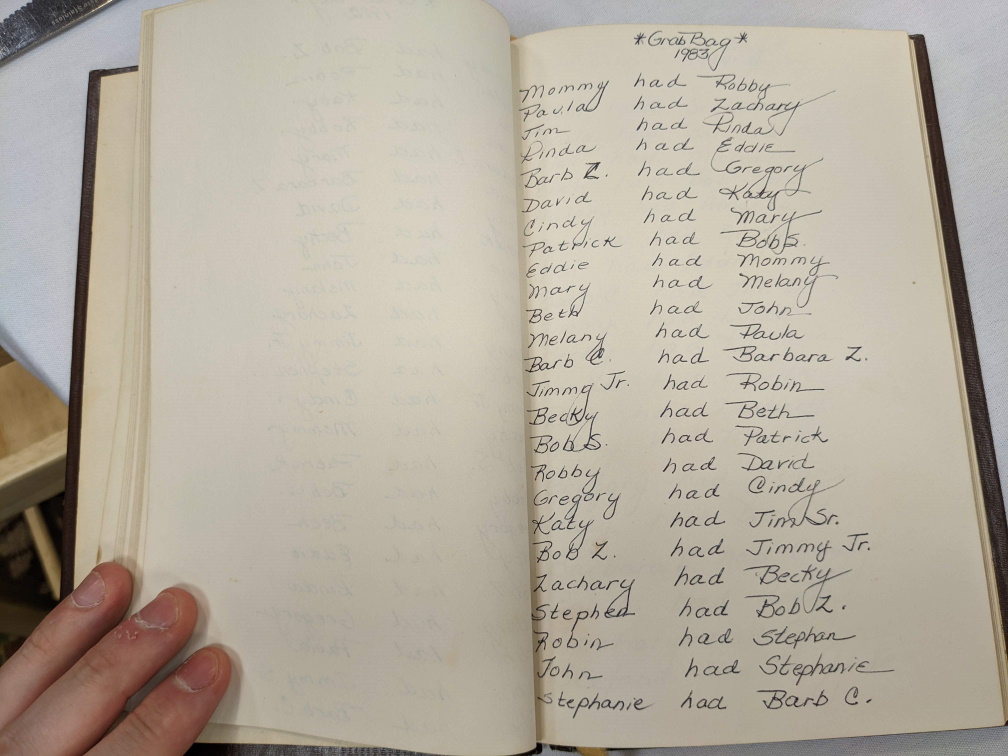 *Grab Bag*
1983
Mommy had Robby
Paula had Zachary
Jim had Linda
Linda had Eddie
Barb Z. had Gregory
David had Katy
Cindy had Mary
Patrick had Bob S.
Eddie had Mommy
Mary had Melany
Beth had John
Melany had Paula
Barb C. had Barbara Z.
Jimmy Jr. had Robin
Becky had Beth
Bob S. had Patrick
Robby had David
Gregory had Cindy
Katy had Jim Sr.
Bob Z. had Jimmy Jr.
Zachary had Becky
Stephen had Bob Z.
Robin had Stephan
John had Stephanie
Stephanie had Barb C.